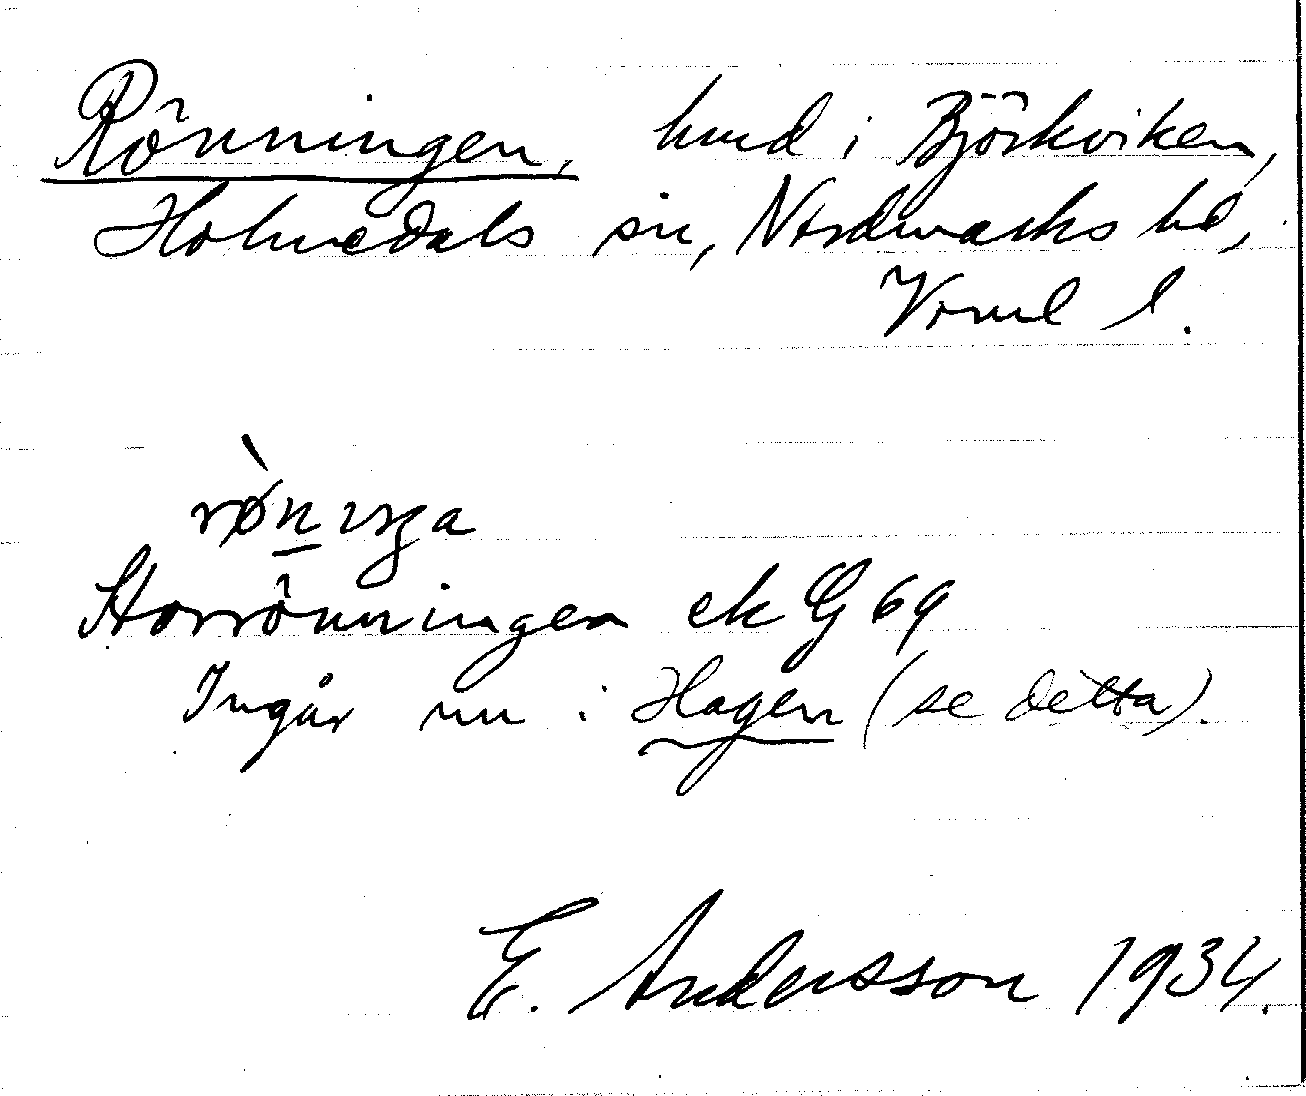 Rönningen, hmd i Björkviken,
Holmedals sn, Nordmarks hd,
Värml l.
Storrönningen ek G 69
Ingår nu i Hagen (se detta).
E. Andersson 1934.